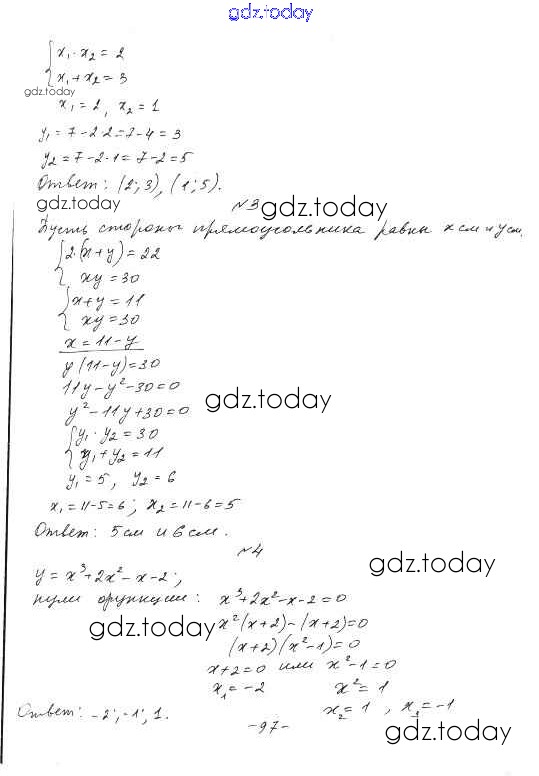 gdz.today
x₁·x₂=2
x₁+x₂=3
gdz.today
x₁=2, x₂=1
y₁=7-2·2=7-4=3
y₂=7-2·1=7-2=5
Ответ: (2;3), (1;5).
gdz.today
№3 gdz.today
Пусть стороны прямоугольника равны x см и y см.
2·(x+y)=22
xy=30
x+y=11
xy=30
x=11-y
y(11-y)=30
11y-y²-30=0
y²-11y+30=0
gdz.today
y₁·y₂=30
y₁+y₂=11
y₁=5, y₂=6
x₁=11-5=6; x₂=11-6=5
Ответ: 5см и 6см.
№4
gdz.today
y=x³+2x²-x-2;
нули функции: x³+2x²-x-2=0
gdz.today
x²(x+2)-(x+2)=0
(x+2)(x²-1)=0
x+2=0 или x²-1=0
x₁=-2 x²=1
x₂=1, x₃=-1
Ответ: -2; -1; 1.
-97-
gdz.today